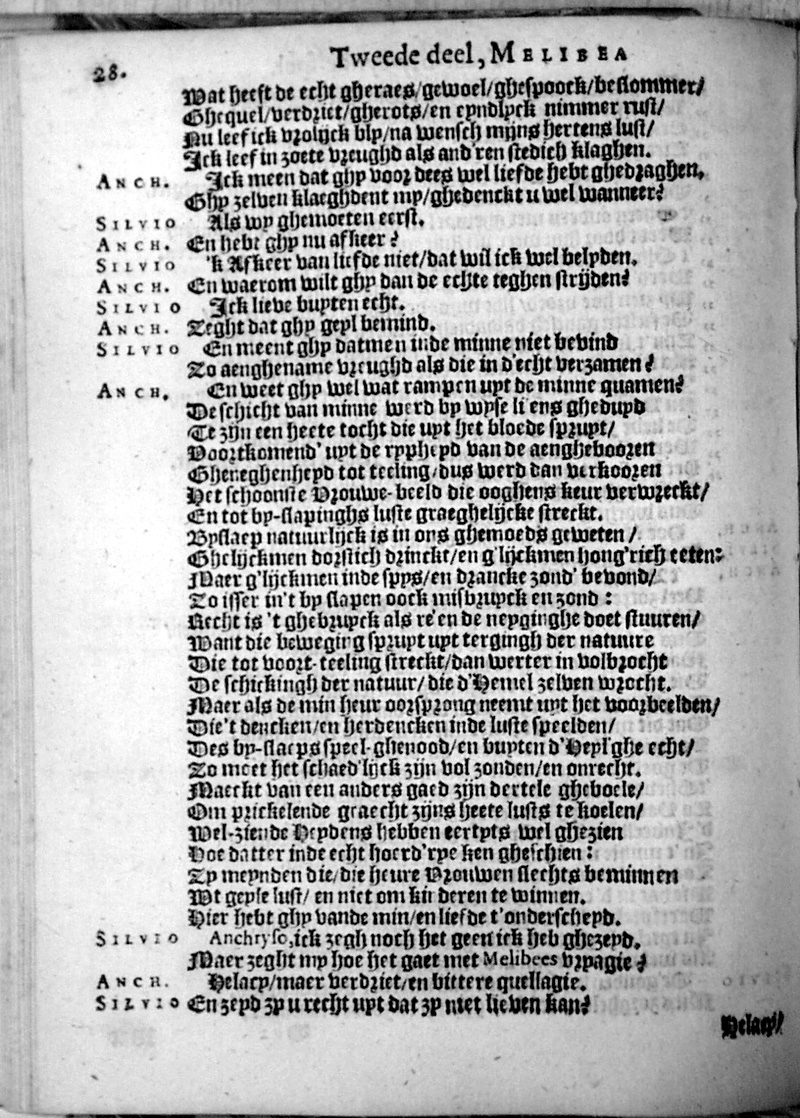 28.
Tweede deel, MELIBEA
Wat heeft de echt gheraes/gewoel/ghespoock/beslommer/
Ghequel/verdriet/gherots/en eyndlyck nimmer rust/
Nu leef ick vrolijck bly/na wensch mijns hertens lust/
Ick leef in zoete vreughd als and'ren stedich klaghen.
ANCH. Ick meen dat ghy voor dees wel liefde hebt ghedraghen,
Ghy zelven klaeghdent my/ghedenckt u wel wanneer?
SILVIO Als wy ghemoeten eerst.
ANCH. En hebt ghy nu afkeer?
SILVIO 'k Afkeer van liefde niet/dat wil ick wel belyden.
ANCH. En waerom wilt ghy dan de echte teghen strijden?
SILVIO Ick lieve buyten echt.
ANCH. Zeght dat ghy geyl bemind.
SILVIO En meent ghy datmen inde minne niet bevind
Zo aenghename vreughd als die in d'echt verzamen?
ANCH. En weet ghy wel wat rampen uyt de minne quamen?
De schicht van minne werd by wyse li ens gheduyd
Te zijn een heete tocht die uyt het bloede spruyt/
Voortkomend' uyt de rypheyd van de aengheboozen
Gheneghenheyd tot teeling/dus werd dan verkoozen
Het schoonste Vrouwe-beeld die ooghens keur verwreckt/
En tot by-slapinghs luste graeghelijcke streckt.
Byslaep natuurlijck is in ons ghemoeds geweten/
Ghelijckmen dorstich drinckt/en g'lijckmen hong'rich eeten:
Maer g'lijckmen inde spys/en drancke zond' bevond/
Zo isser in't by slapen oock misbruyck en zond:
Recht is 't ghebruyck als re'en de neyginghe doet stuuren/
Want die beweging spruyt uyt tergingh der natuure
Die tot voort-teeling streckt/dan werter in volbrocht
De schickingh der natuur/die d'Hemel zelven wrocht.
Maer als de min heur oorsprong neemt uyt het voorbeelden/
Die't dencken/en herdencken inde luste speelden/
Des by-slaeps speel-ghenood/en buyten d'Heyl'ghe echt/
Zo moet het schaed'lijck zijn vol zonden/en onrecht.
Maeckt van een anders gaed zijn dertele gheboele/
Om prickelende graecht zijns heete lusts te koelen/
Wel-ziende Heydens hebben eertyts wel ghezien
Hoe datter inde echt hoerd'rye ken gheschien:
Zy meynden die/die heure Vrouwen slechts beminnen
Wt geyle lust/en niet om kinderen te winnen.
Hier hebt ghy vande min/en liefde t'onderscheyd.
SILVIO Anchryso, ick zegh noch het geen ick heb ghezeyd.
Maer zeght my hoe het gaet met Melibees vryagie?
ANCH. Helaey/maer verdriet/en bittere quellagie.
SILVIO En zeyd zy u recht uyt dat zy niet lieven kan?
Helaey/